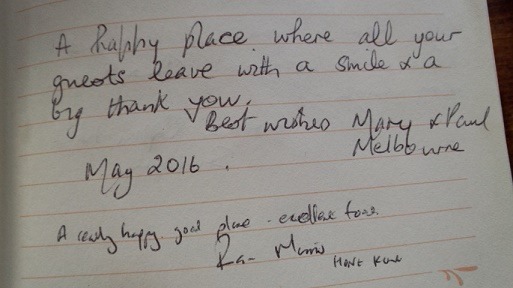 A happy place where all your
guests leave with a smile & a
big thank you.
Best wishes Mary & Paul
Melbourne
May 2016.
A really happy good place - excellent